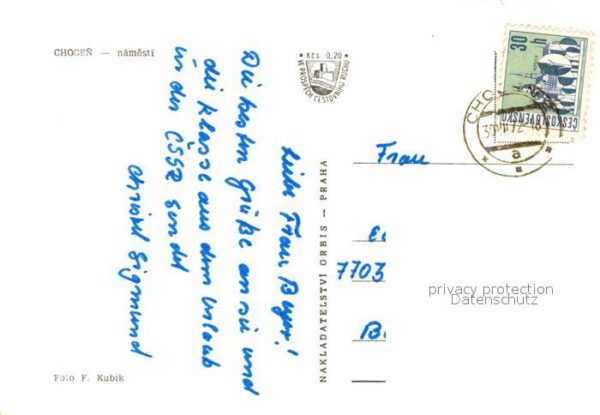 CHOCEŇ — náměstí
Liebe Frau Beyer!
Die besten Grüße an sie und
die Klasse aus dem Urlaub
in der ČSSZ sendet
Christel Sigmund
Foto F. Kubík
Kčs 0,20
VE PROSPĚCH CESTOVNÍHO RUCHU
NAKLADATELSTVÍ ORBIS — PRAHA
30 h
ČESKOSLOVENSKO
CHOC
a
Frau
7703
privacy protection
Datenschutz